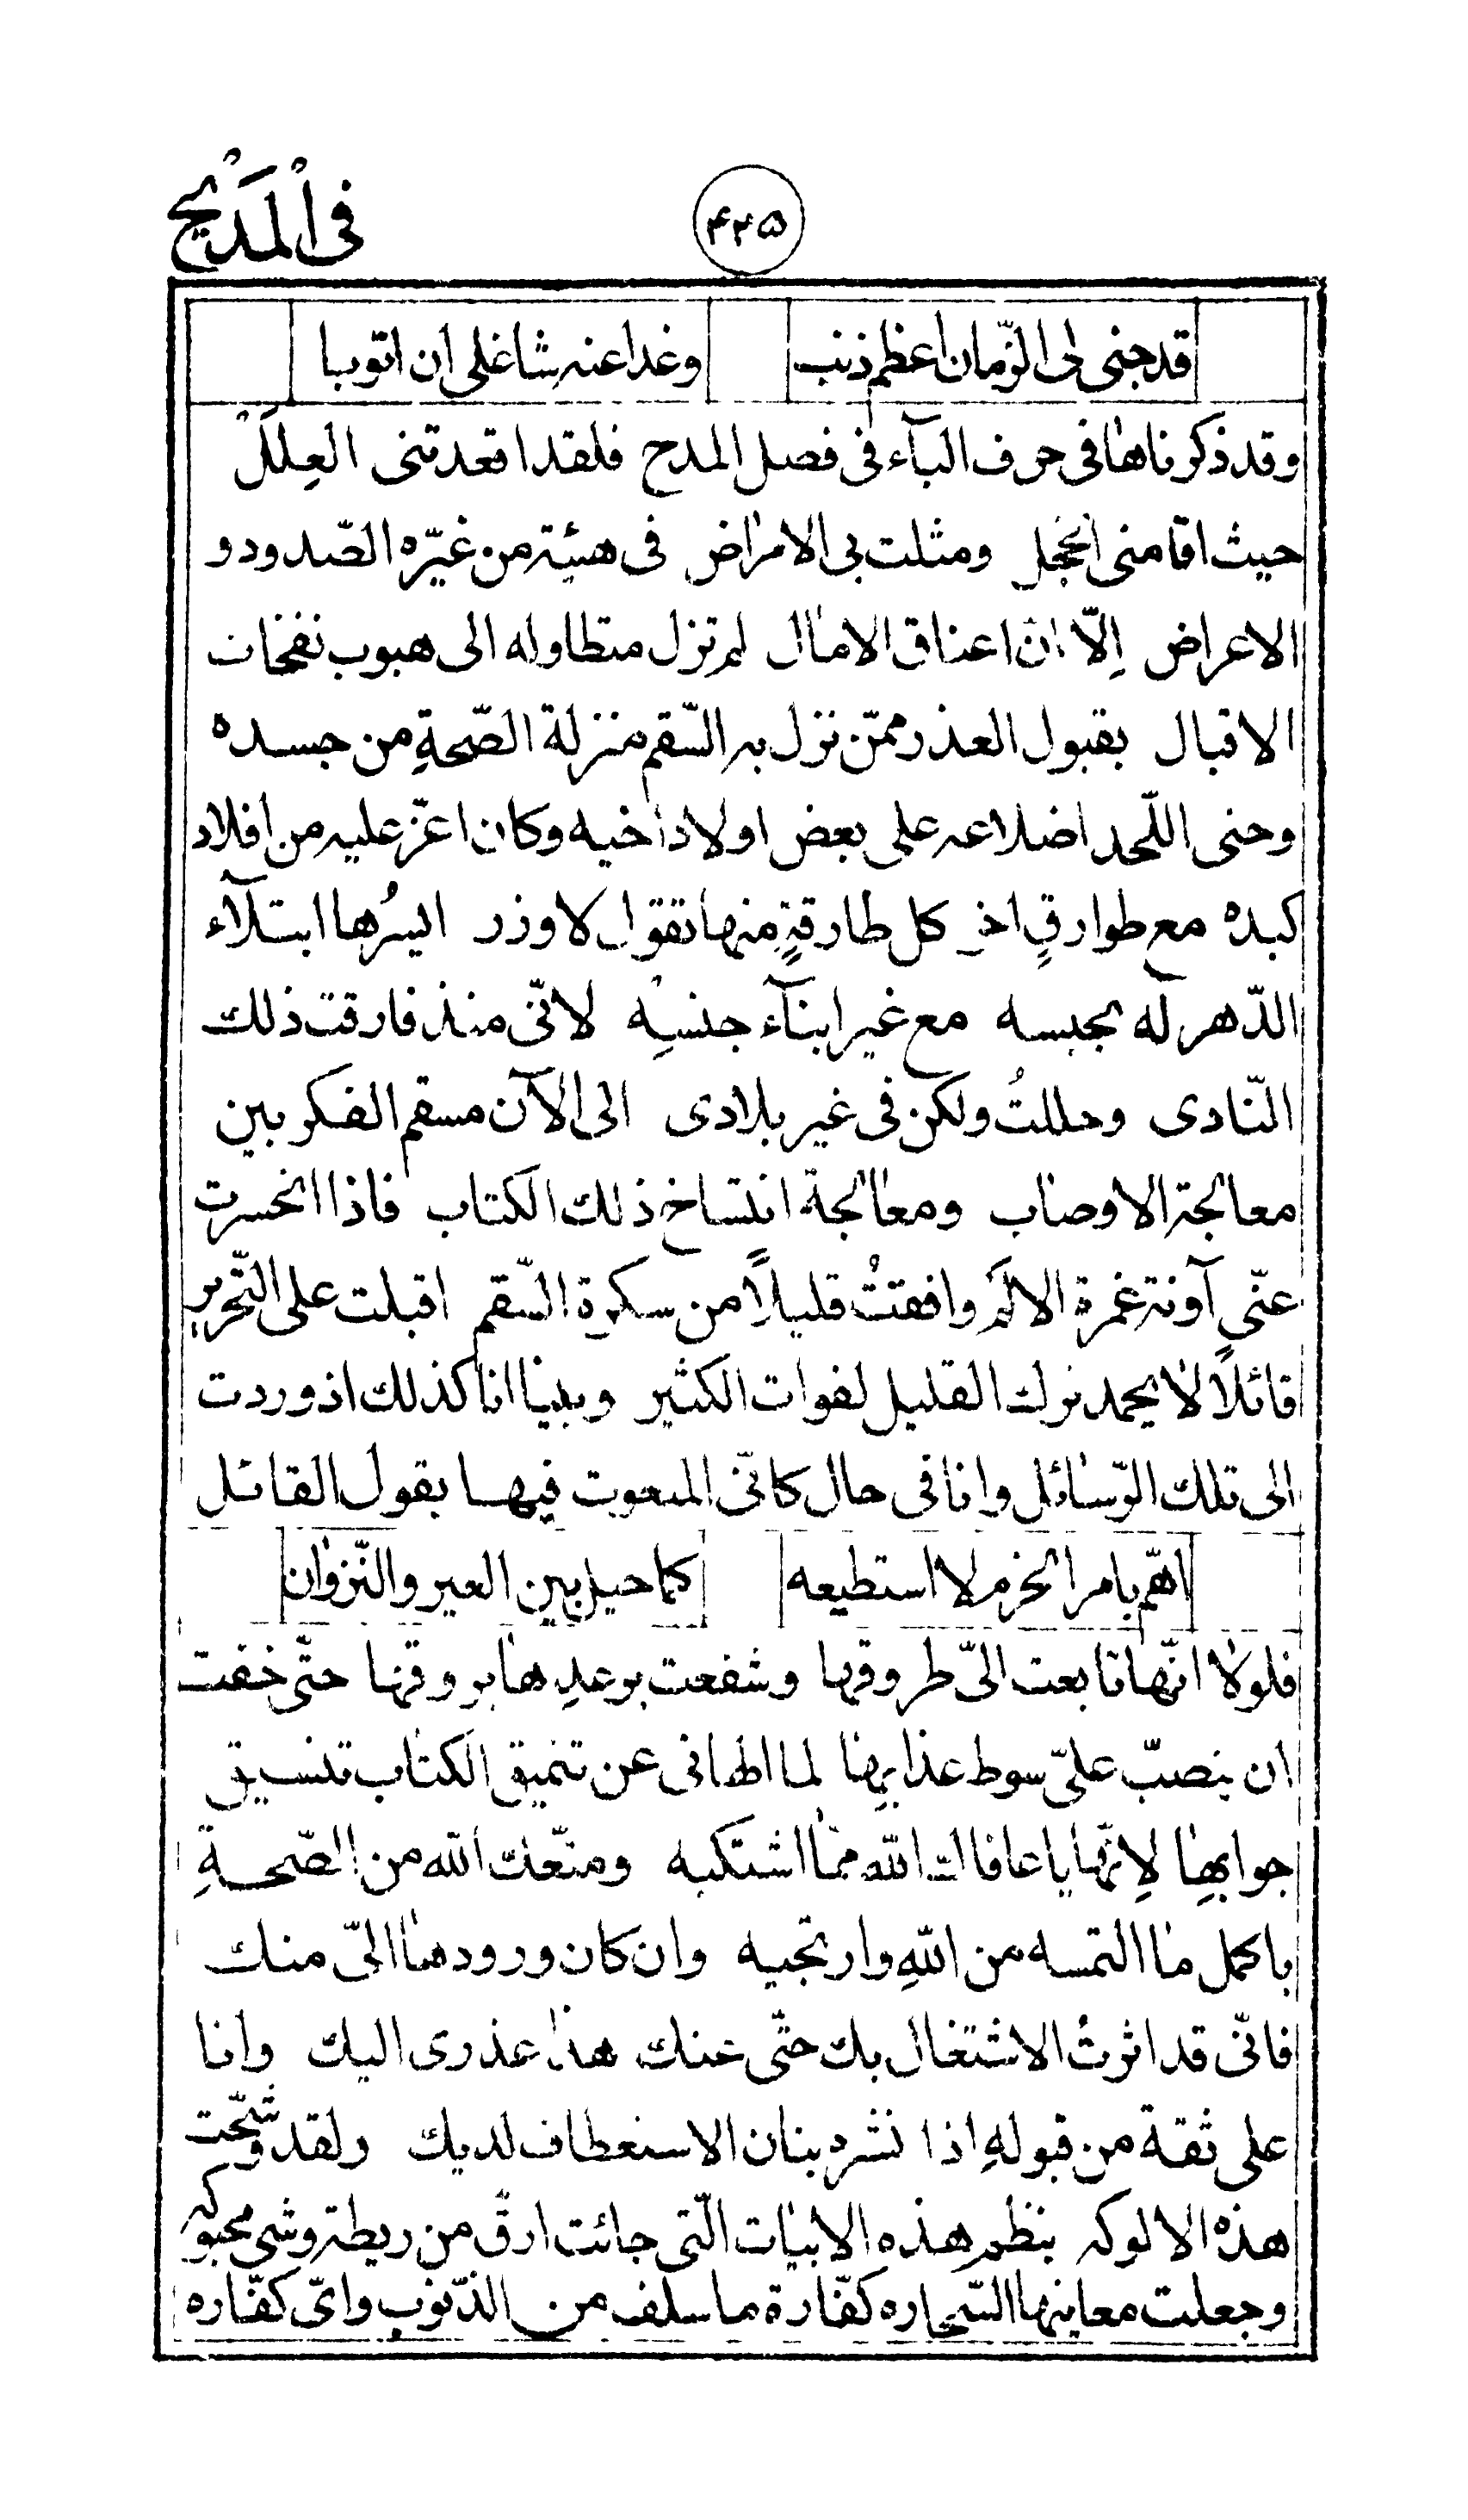 فى المَدِيح
۴۲۵
قد جنى لى الزّمان اعظم ذنب وغدا عنه شاغلى ان اتوبا
وقد ذكرناها فى حرف البآء فى فصل المدح فلقد اقعدتنى العِلَلُ
حيث اقامنى الخجل ومثلت بى الامراض فى هيئة من غيّره الصّدود و
الاعراض اِلّا انّ اعناق الامال لم تزل متطاوله الى هبوب نفحات
الاقبال بقبول العذر ممّن نزل به السّقم منزلة الصّحةِ من جسده
وحنى اللّحد اضلاعه على بعض اولاد اخيه وكان اعزّ عليه من افلاد
كبده مع طوارقٍ اخر كل طارقةٍ منها تقول لا وزر ايسرُها ابتلآء
الدّهر له بحبسه مع غير ابنآء جنسِه لانّى منذ فارقت ذلك
النّادى وحللتُ ولكن فى غير بلادى الى الآن مسقم الفكر بين
معالجة الاوصاب ومعالجة انتساخ ذلك الكتاب فاذا انحسرت
عنّى آونة غمرة الالَم وافقتُ قليلًا من سكرة السّقم اقبلت على التّحرير
قائلًا لا يحمد ترك القليل لفوات الكثير وبينا انا كذلك اذ وردت
الى تلك الرّسائل وانا فى حال كانّى المنعوت فيها بقول القائل
اهمّ بامر الحزم لا استطيعه كما حيل بين العير والنّزوان
فلولا انّها تابعت الىّ طروقها وشفعت بوعدِها بروقها حتّى خفت
ان ينصبّ علىّ سوط عذابِها لما الهانى عن تنميق الكتاب تنسيق
جوابِها لِانّها يا عافاك الله ممّا اشتكيه ومتّعك الله من الصّحةِ
باكمل ما التمسه من اللهِ وارتجيه وان كان ورودها الىّ منك
فانّى قد اثرتُ الاشتغال بك حتّى عنك هذا عذرى اليك وانا
على ثقة من قبولهِ اذا نشر بنان الاستعطاف لديك ولقد وشّحت
هذه الالوكه بنظم هذهِ الابيات الّتى جائت ارقّ من ريطة وشى محبوكه
وجعلت معانيها السّحاره كفّارة ما سلف من الذّنوب واىّ كفّاره